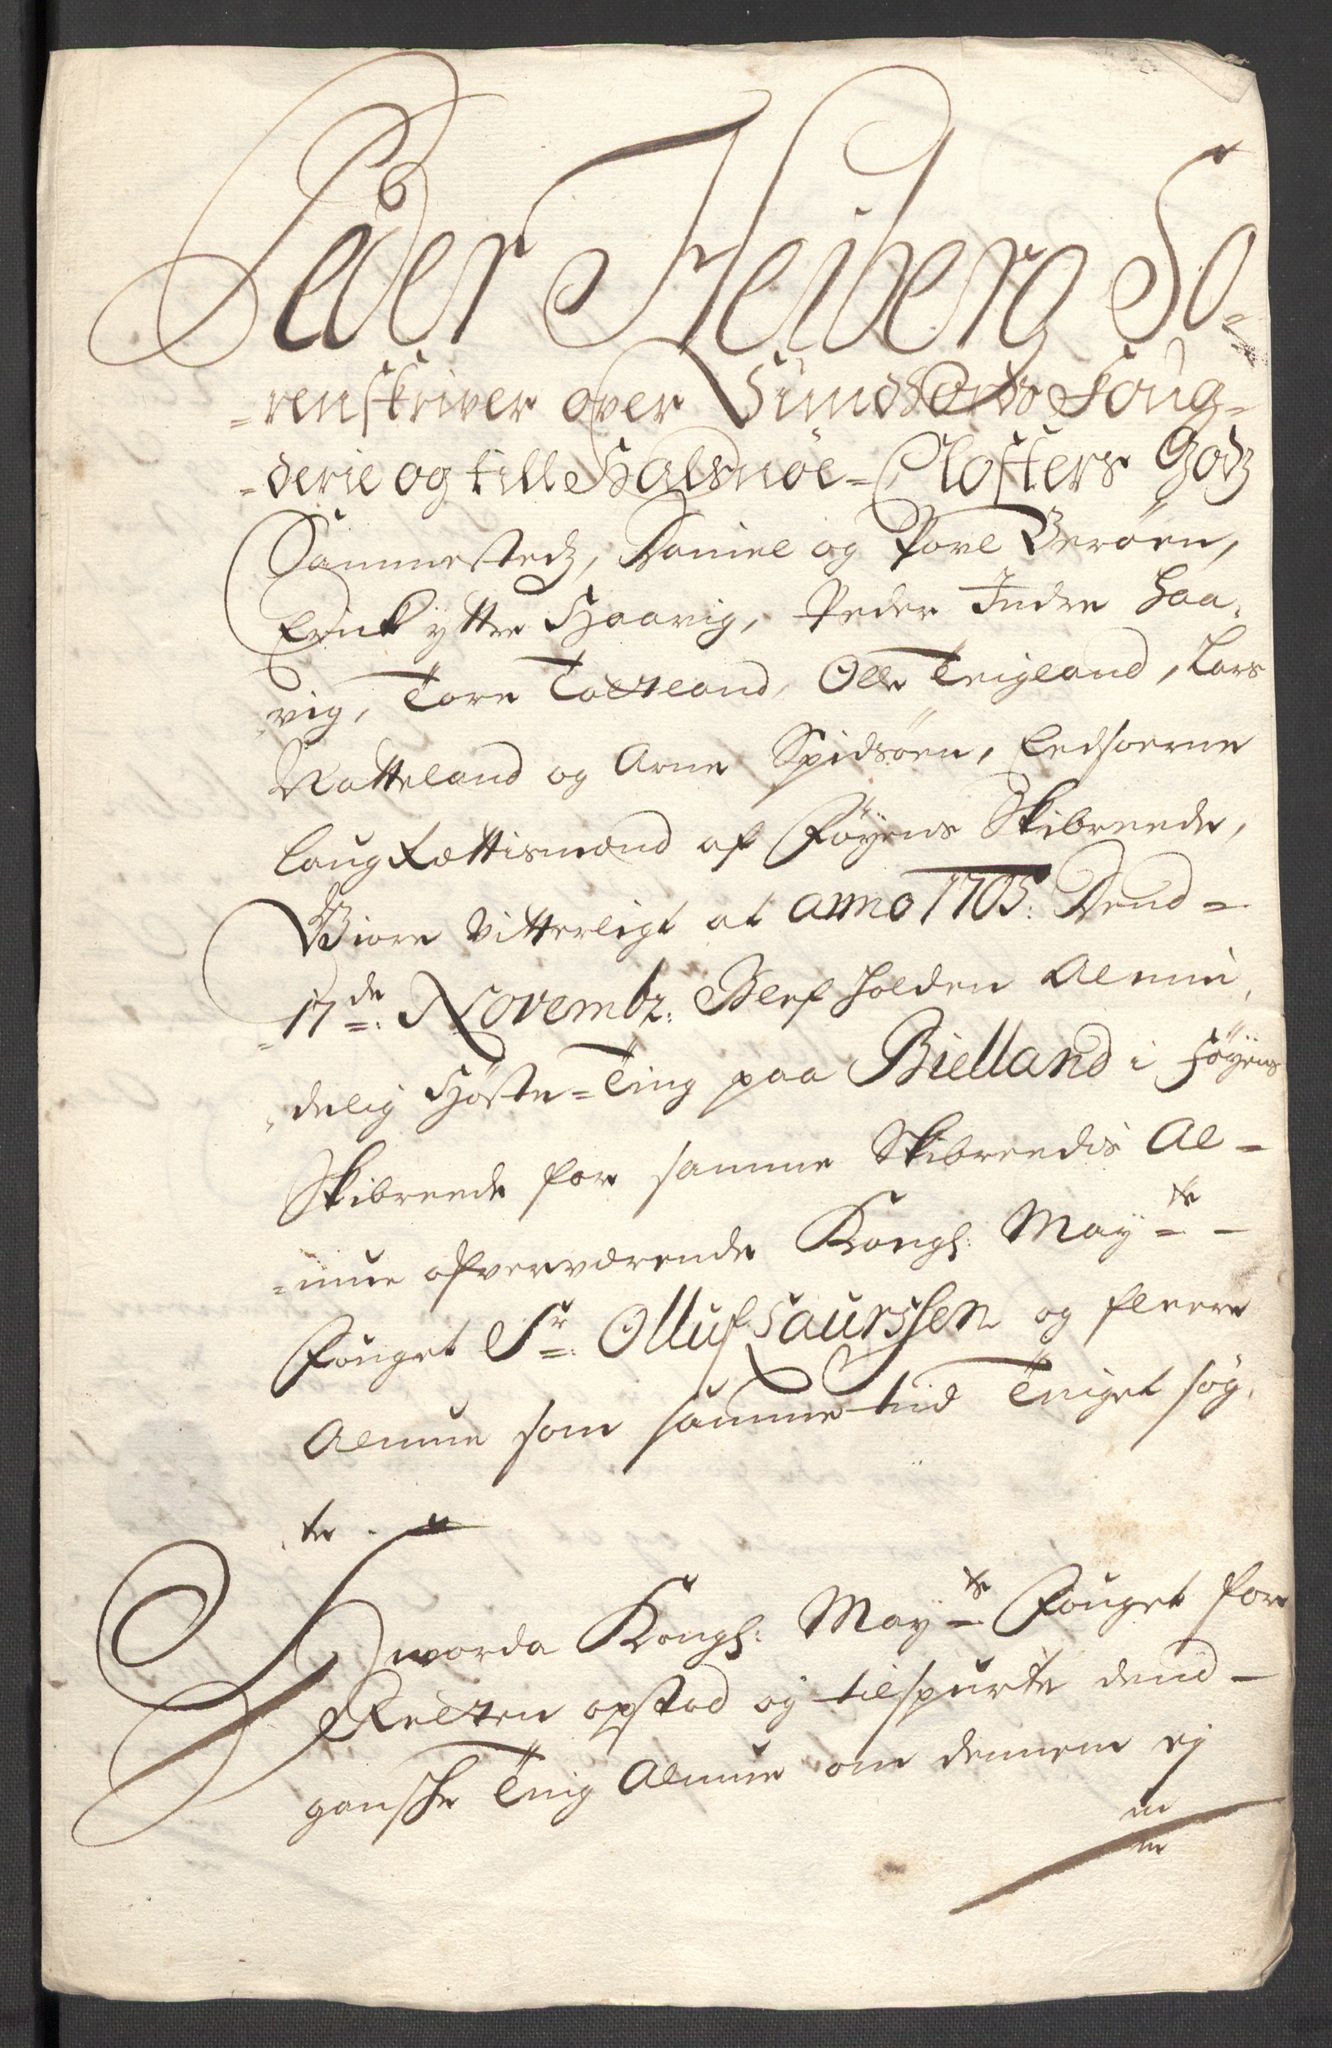 Peder Heiberg So-
-renskriver over Sundhords Foug-
-derie og till Halsnøe-Closters Godz
Sammestedz, Daniel og Povl Berøen,
Erick yttre Haavig, Peder Indre Haa-
vig, Tore Totland, Olle Tvigland, Lars
Natteland og Arne Spidsøen, Eedsorne
LaugRettismænd af Føyens Skibreede,
Giøre Vitterligt at anno 1705. Dend-
17de: Novembr. Blef holden Almin-
delig Høste-Ting paa Bielland i Føyens
Skibreede for samme Skibreedis Al-
-mue ofververende Kongl: Mayts-
Fouget Sr. Olluf Laurssen og fleere
Almue som samme tiid Tinget søg-
te.
Hvorda Kongl: Mayts Fouget for
Retten opstod og tilspurte dend-
gansche Ting Almue om dennem ej